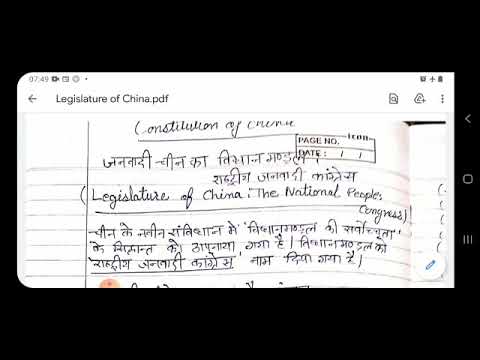 07:49
Legislature of China.pdf
Constitution of China
PAGE NO.
DATE: / /
जनवादी चीन का विधानमण्डल :
राष्ट्रीय जनवादी कांग्रेस
(Legislature of China: The National Peoples
Congress)
चीन के नवीन संविधान में 'विधानमण्डल की सर्वोच्चता'
के सिद्धान्त को अपनाया गया है। विधानमण्डल को
'राष्ट्रीय जनवादी कांग्रेस' नाम दिया गया है।